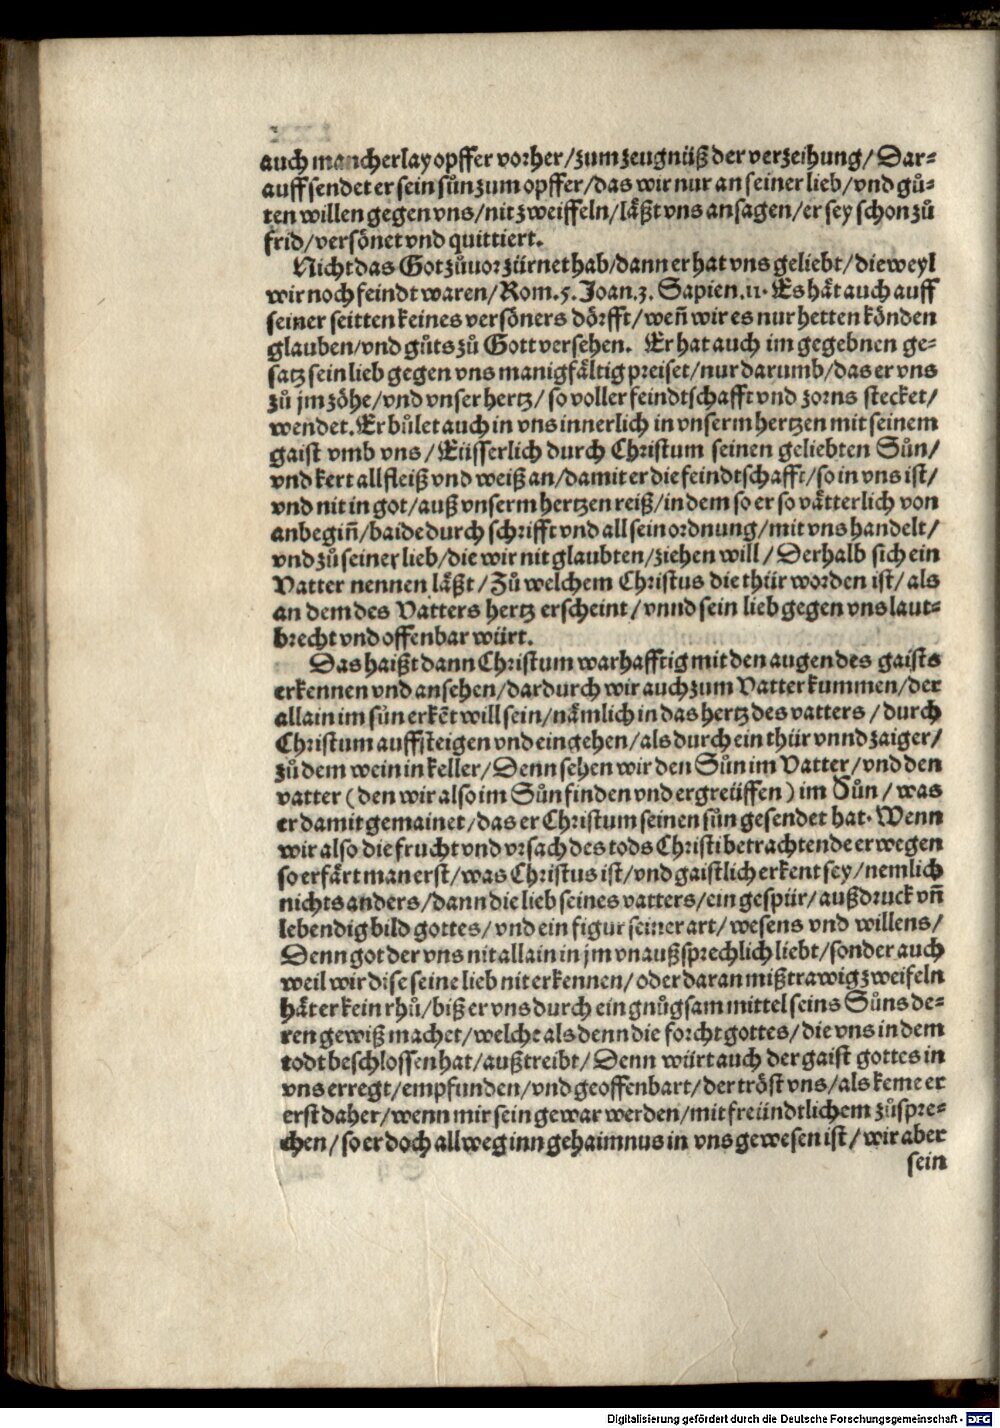 auch mancherlay opffer vorher/zum zeugnüß der verzeihung/Dar⸗
auff sendet er sein sůn zum opffer/das wir nur an seiner lieb/vnd gů⸗
ten willen gegen vns/nit zweiffeln/läßt vns ansagen/er sey schon zů
frid/versönet vnd quittiert.
Nicht das Got zůuor zürnet hab/dann er hat vns geliebt/dieweyl
wir noch feindt waren/Rom.5. Joan.3. Sapien.11. Es hät auch auff
seiner seitten keines versöners dörfft/weñ wir es nur hetten könden
glauben/vnd gůts zů Gott versehen. Er hat auch im gegebnen ge⸗
satz sein lieb gegen vns manigfältig preiset/nur darumb/das er vns
zů jm zöhe/vnd vnser hertz/so voller feindtschafft vnd zorns stecket/
wendet. Er bůlet auch in vns innerlich in vnserm hertzen mit seinem
gaist vmb vns/Eüsserlich durch Christum seinen geliebten Sůn/
vnd kert all fleiß vnd weiß an/damit er die feindtschafft/so in vns ist/
vnd nit in got/auß vnserm hertzen reiß/in dem so er so vätterlich von
anbegiñ/baide durch schrifft vnd all sein ordnung/mit vns handelt/
vnd zů seiner lieb/die wir nit glaubten/ziehen will/Derhalb sich ein
Vatter nennen läßt/Zů welchem Christus die thür worden ist/als
an dem des Vatters hertz erscheint/vnnd sein lieb gegen vns laut⸗
brecht vnd offenbar würt.
Das haißt dann Christum warhafftig mit den augen des gaists
erkennen vnd ansehen/dardurch wir auch zum Vatter kummen/der
allain im sůn erkēt will sein/nämlich in das hertz des vatters/durch
Christum auffsteigen vnd eingehen/als durch ein thür vnnd zaiger/
zů dem wein in keller/Denn sehen wir den Sůn im Vatter/vnd den
vatter (den wir also im Sůn finden vnd ergreüffen) im Sůn/was
er damit gemainet/das er Christum seinen sůn gesendet hat. Wenn
wir also die frucht vnd vrsach des tods Christi betrachtende erwegen
so erfärt man erst/was Christus ist/vnd gaistlich erkent sey/nemlich
nichts anders/dann die lieb seines vatters/ein gespür/außdruck vñ
lebendig bild gottes/vnd ein figur seiner art/wesens vnd willens/
Denn got der vns nit allain in jm vnaußsprechlich liebt/sonder auch
weil wir dise seine lieb nit erkennen/oder daran mißtrawig zweifeln
hät er kein rhů/biß er vns durch ein gnůgsam mittel seins Sůns de⸗
ren gewiß machet/welche als denn die forcht gottes/die vns in dem
todt beschlossen hat/außtreibt/Denn würt auch der gaist gottes in
vns erregt/empfunden/vnd geoffenbart/der tröst vns/als keme er
erst daher/wenn mir sein gewar werden/mit freündtlichem zůspre⸗
chen/so er doch allweg inn gehaimnus in vns gewesen ist/wir aber
sein
Digitalisierung gefördert durch die Deutsche Forschungsgemeinschaft - DFG